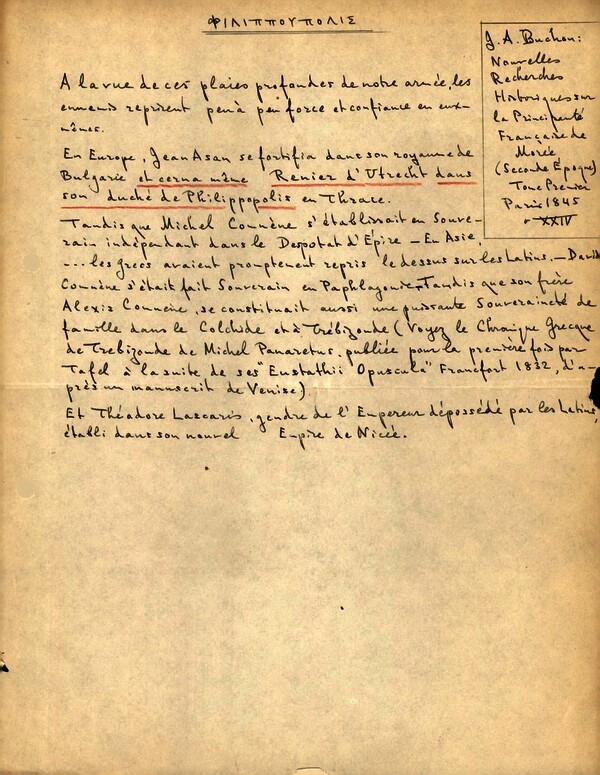 ΦΙΛΙΠΠΟΥΠΟΛΙΣ
J. A. Buchon:
Nouvelles
Recherches
Historiques sur
la Principauté
Française de
Morée
(Seconde Époque)
Tome Premier
Paris 1845
XXIV
A la vue de ces plaies profondes de notre armée, les
ennemis reprirent peu à peu force et confiance en eux-
mêmes.
En Europe, Jean Asan se fortifia dans son royaume de
Bulgarie et cerna même Renier d'Utrecht dans
son duché de Philippopolis en Thrace.
Tandis que Michel Comnène s'établissait en Souve-
rain indépendant dans le Despotat d'Epire – En Asie,
... les grecs avaient promptement repris le dessus sur les Latins. – David
Comnène s'était fait Souverain en Paphlagonie, Tandis que son frère
Alexis Comnène, se constituait aussi une puissante Souveraineté de
famille dans le Colchide et à Trébizonde (Voyez le Chronique Grecque
de Trebizonde de Michel Panaretus, publiée pour la première fois par
Tafel à la suite de ses Eustathii "Opuscula" Francfort 1832, d'a-
près un manuscrit de Venise)
Et Théodore Lascaris, gendre de l'Empereur dépossédé par les Latins,
établi dans son nouvel Empire de Nicée.